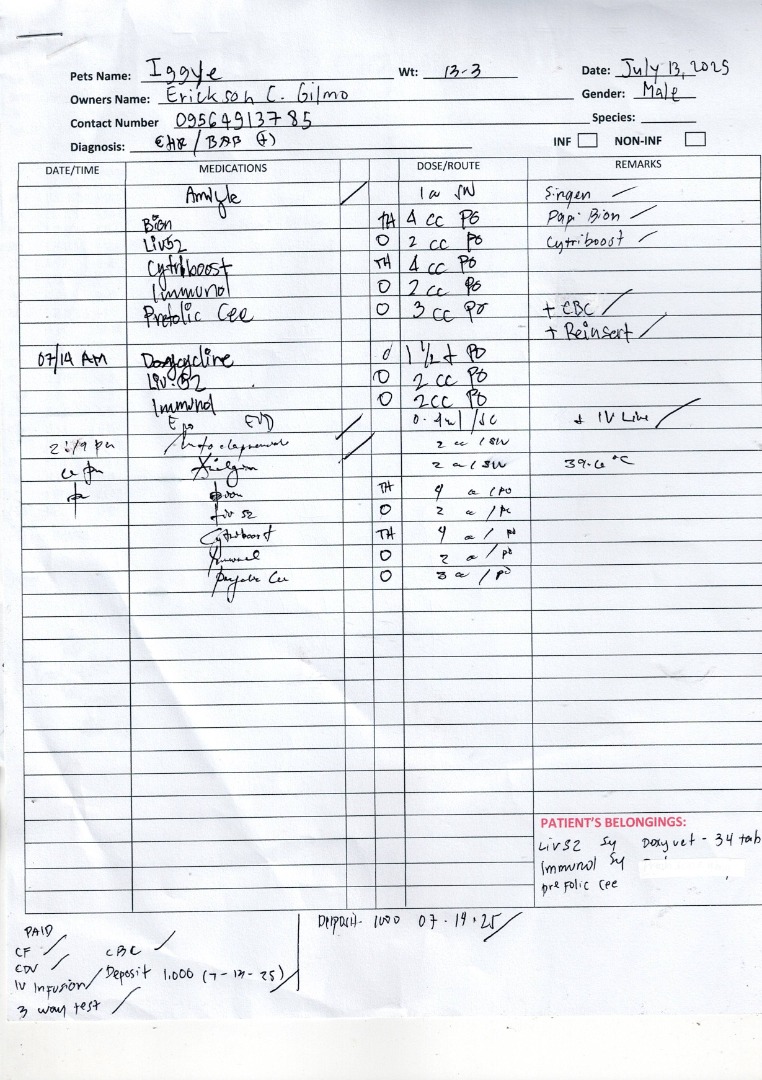 Pets Name: Iggye Wt: 13-3 Date: July 13, 2025
Owners Name: Erickson C. Gilmo Gender: Male
Contact Number 09564913785 Species:
Diagnosis: EHR / BAB (+) INF NON-INF
DATE/TIME MEDICATIONS DOSE/ROUTE REMARKS
Singen
Bion TH 4 cc PO Papi Bion
Liv52 O 2 cc PO Cytriboost
Cytriboost TH 4 cc PO
Immunol O 2 cc PO
Prefolic Cee O 3 cc PO + CBC
+ Reinsert
07/14 AM Doxycycline 1 1/2 t PO
Liv.52 O 2 cc PO
Immunol O 2cc PO
Epo EOD 0.4ml /SC + IV Line
2:19 pm 2 cc
39.6 °C
Bion TH 4 cc /PO
Liv 52 O 2 cc /PO
Cytriboost TH 4 cc / PO
Immunol O 2 cc /PO
O 3 cc / PO
PATIENT'S BELONGINGS:
Liv52 Sy Doxyvet - 34 tab
Immunol Sy
prefolic cee
Deposit 1000 07-14-25
PAID
CF CBC
CDV
IV Infusion Deposit 1,000 (7-13-25)
3 way test